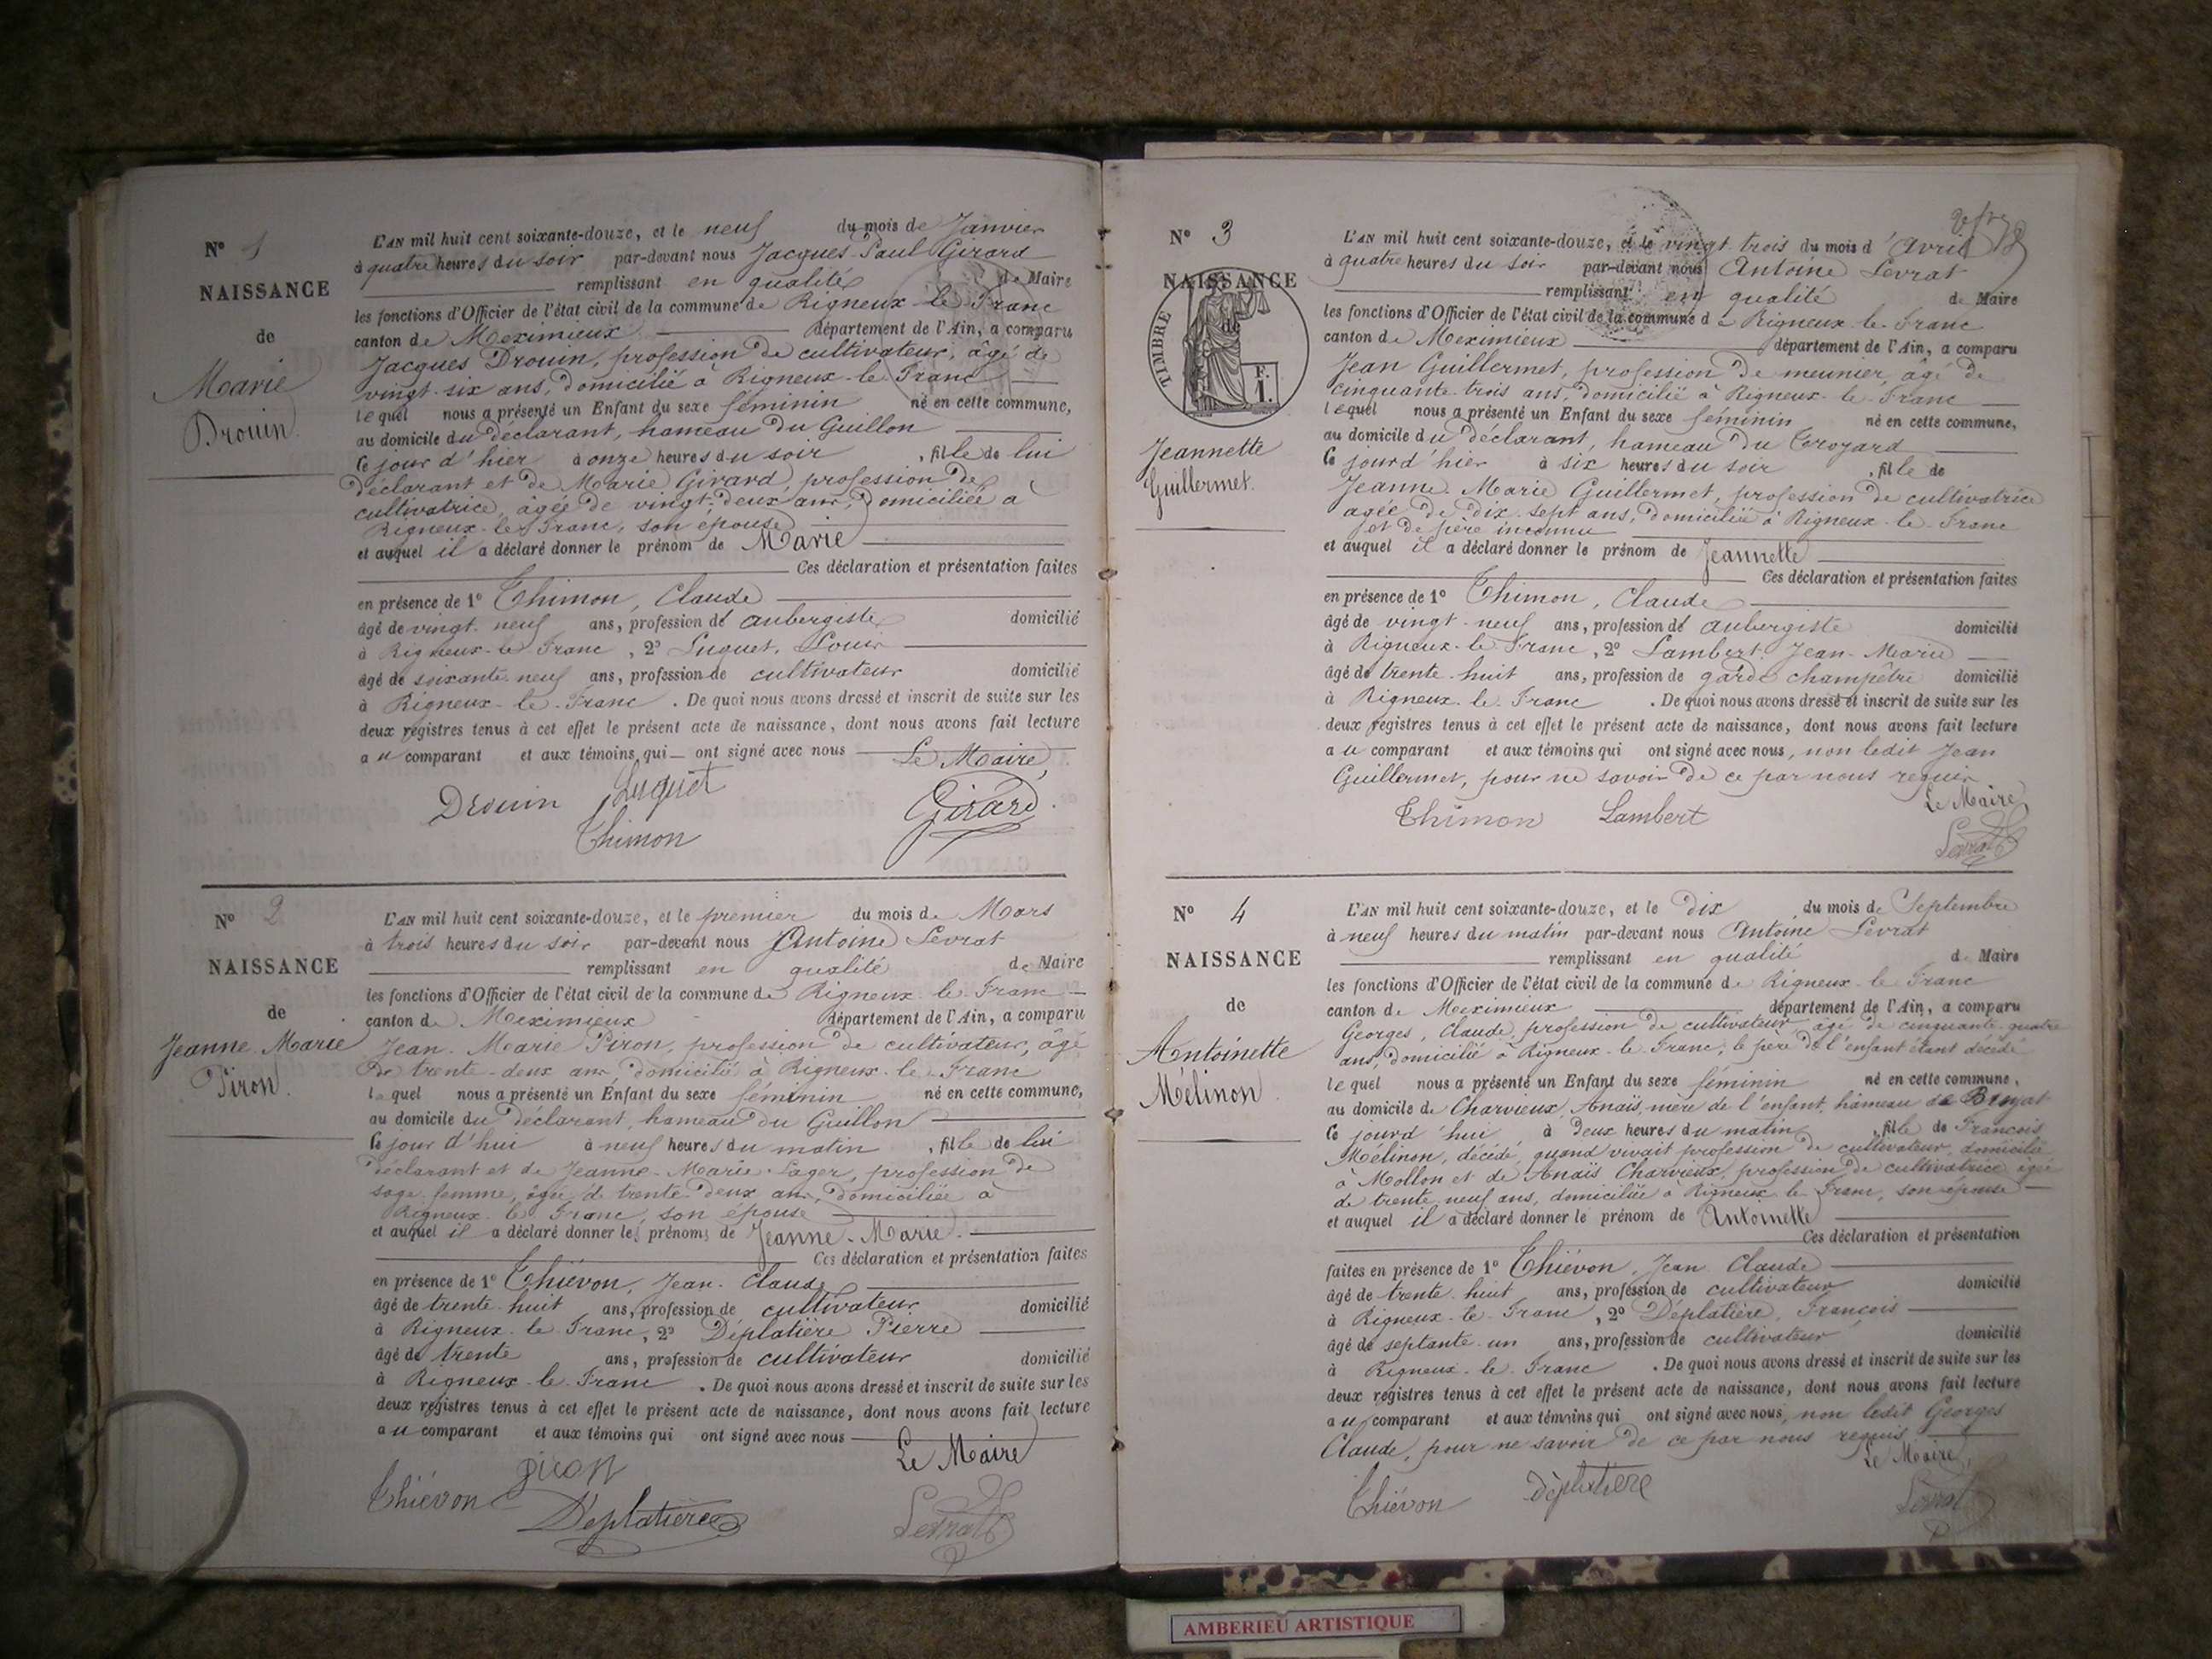 N° 1
NAISSANCE
de
Marie
Drouin
L'AN mil huit cent soixante-douze, et le neuf du mois de Janvier
à quatre heures du soir par-devant nous Jacques Paul Girard
remplissant en qualité de Maire
les fonctions d'Officier de l'état civil de la commune de Rigneux-le-Franc
canton de Meximieux département de l'Ain, a comparu
Jacques Drouin, profession de cultivateur, âgé de
vingt-six ans, domicilié à Rigneux-le-Franc
lequel nous a présenté un Enfant du sexe féminin né en cette commune,
au domicile du déclarant, hameau du Guillon
Ce jour d'hier à onze heures du soir, fille de lui
déclarant et de Marie Girard, profession de
cultivatrice, âgée de vingt-deux ans, domiciliée à
Rigneux-le-Franc, son épouse
et auquel il a déclaré donner le prénom de Marie
Ces déclaration et présentation faites
en présence de 1° Thimon, Claude
âgé de vingt-neuf ans, profession de aubergiste domicilié
à Rigneux-le-Franc, 2° Luquet, Louis
âgé de soixante-neuf ans, profession de cultivateur domicilié
à Rigneux-le-Franc. De quoi nous avons dressé et inscrit de suite sur les
deux registres tenus à cet effet le présent acte de naissance, dont nous avons fait lecture
au comparant et aux témoins qui ont signé avec nous Le Maire,
Drouin Luquet
Thimon Girard
N° 2
NAISSANCE
de
Jeanne-Marie
Piron.
L'AN mil huit cent soixante-douze, et le premier du mois de Mars
à trois heures du soir par-devant nous Antoine Levrat
remplissant en qualité de Maire
les fonctions d'Officier de l'état civil de la commune de Rigneux-le-Franc
canton de Meximieux département de l'Ain, a comparu
Jean-Marie Piron, profession de cultivateur, âgé
de trente-deux ans, domicilié à Rigneux-le-Franc
lequel nous a présenté un Enfant du sexe féminin né en cette commune,
au domicile du déclarant, hameau du Guillon
Ce jour d'hui à neuf heures du matin, fille de lui
déclarant et de Jeanne-Marie Lager, profession de
sage-femme, âgée de trente-deux ans, domiciliée à
Rigneux-le-Franc, son épouse
et auquel il a déclaré donner les prénoms de Jeanne-Marie.
Ces déclaration et présentation faites
en présence de 1° Thiévon, Jean-Claude
âgé de trente-huit ans, profession de cultivateur domicilié
à Rigneux-le-Franc, 2° Déplatière Pierre
âgé de trente ans, profession de cultivateur domicilié
à Rigneux-le-Franc. De quoi nous avons dressé et inscrit de suite sur les
deux registres tenus à cet effet le présent acte de naissance, dont nous avons fait lecture
au comparant et aux témoins qui ont signé avec nous
Le Maire
Thiévon Piron
Déplatière Levrat
N° 3
NAISSANCE
de
TIMBRE
F.
1.
Jeannette
Guillermet.
L'AN mil huit cent soixante-douze, et le vingt-trois du mois d'Avril
à quatre heures du soir par-devant nous Antoine Levrat
remplissant en qualité de Maire
les fonctions d'Officier de l'état civil de la commune de Rigneux-le-Franc
canton de Meximieux département de l'Ain, a comparu
Jean Guillermet, profession de meunier, âgé de
cinquante-trois ans, domicilié à Rigneux-le-Franc
lequel nous a présenté un Enfant du sexe féminin né en cette commune,
au domicile du déclarant, hameau du Croyard
Ce jourd'hier à six heures du soir, fille de
Jeanne-Marie Guillermet, profession de cultivatrice
agée de dix-sept ans, domiciliée à Rigneux-le-Franc
et de père inconnu
et auquel il a déclaré donner le prénom de Jeannette
Ces déclaration et présentation faites
en présence de 1° Thimon, Claude
âgé de vingt-neuf ans, profession de aubergiste domicilié
à Rigneux-le-Franc, 2° Lambert, Jean-Marie
âgé de trente-huit ans, profession de garde champêtre domicilié
à Rigneux-le-Franc. De quoi nous avons dressé et inscrit de suite sur les
deux registres tenus à cet effet le présent acte de naissance, dont nous avons fait lecture
au comparant et aux témoins qui ont signé avec nous, non ledit Jean
Guillermet, pour ne savoir de ce par nous requis
Le Maire
Thimon Lambert
Levrat
N° 4
NAISSANCE
de
Antoinette
Mélinon
L'AN mil huit cent soixante-douze, et le dix du mois de Septembre
à neuf heures du matin par-devant nous Antoine Levrat
remplissant en qualité de Maire
les fonctions d'Officier de l'état civil de la commune de Rigneux-le-Franc
canton de Meximieux département de l'Ain, a comparu
Georges, Claude, profession de cultivateur âgé de cinquante-quatre
ans, domicilié à Rigneux-le-Franc, le père de l'enfant étant décédé
lequel nous a présenté un Enfant du sexe féminin né en cette commune,
au domicile de Charvieux, Anaïs, mère de l'enfant, hameau de
Ce jourd'hui à deux heures du matin, fille de François
Mélinon, décédé, quand vivait profession de cultivateur, domicilié
à Mollon et de Anaïs Charvieux, profession de cultivatrice agée
de trente-neuf ans, domiciliée à Rigneux-le-Franc, son épouse
et auquel il a déclaré donner le prénom de Antoinette
Ces déclaration et présentation
faites en présence de 1° Thiévon, Jean Claude
âgé de trente-huit ans, profession de cultivateur domicilié
à Rigneux-le-Franc, 2° Déplatière, François
âgé de septante-un ans, profession de cultivateur domicilié
à Rigneux-le-Franc. De quoi nous avons dressé et inscrit de suite sur les
deux registres tenus à cet effet le présent acte de naissance, dont nous avons fait lecture
au comparant et aux témoins qui ont signé avec nous, non ledit Georges
Claude, pour ne savoir de ce par nous requis
Le Maire,
Thiévon Déplatière Levrat
AMBERIEU ARTISTIQUE